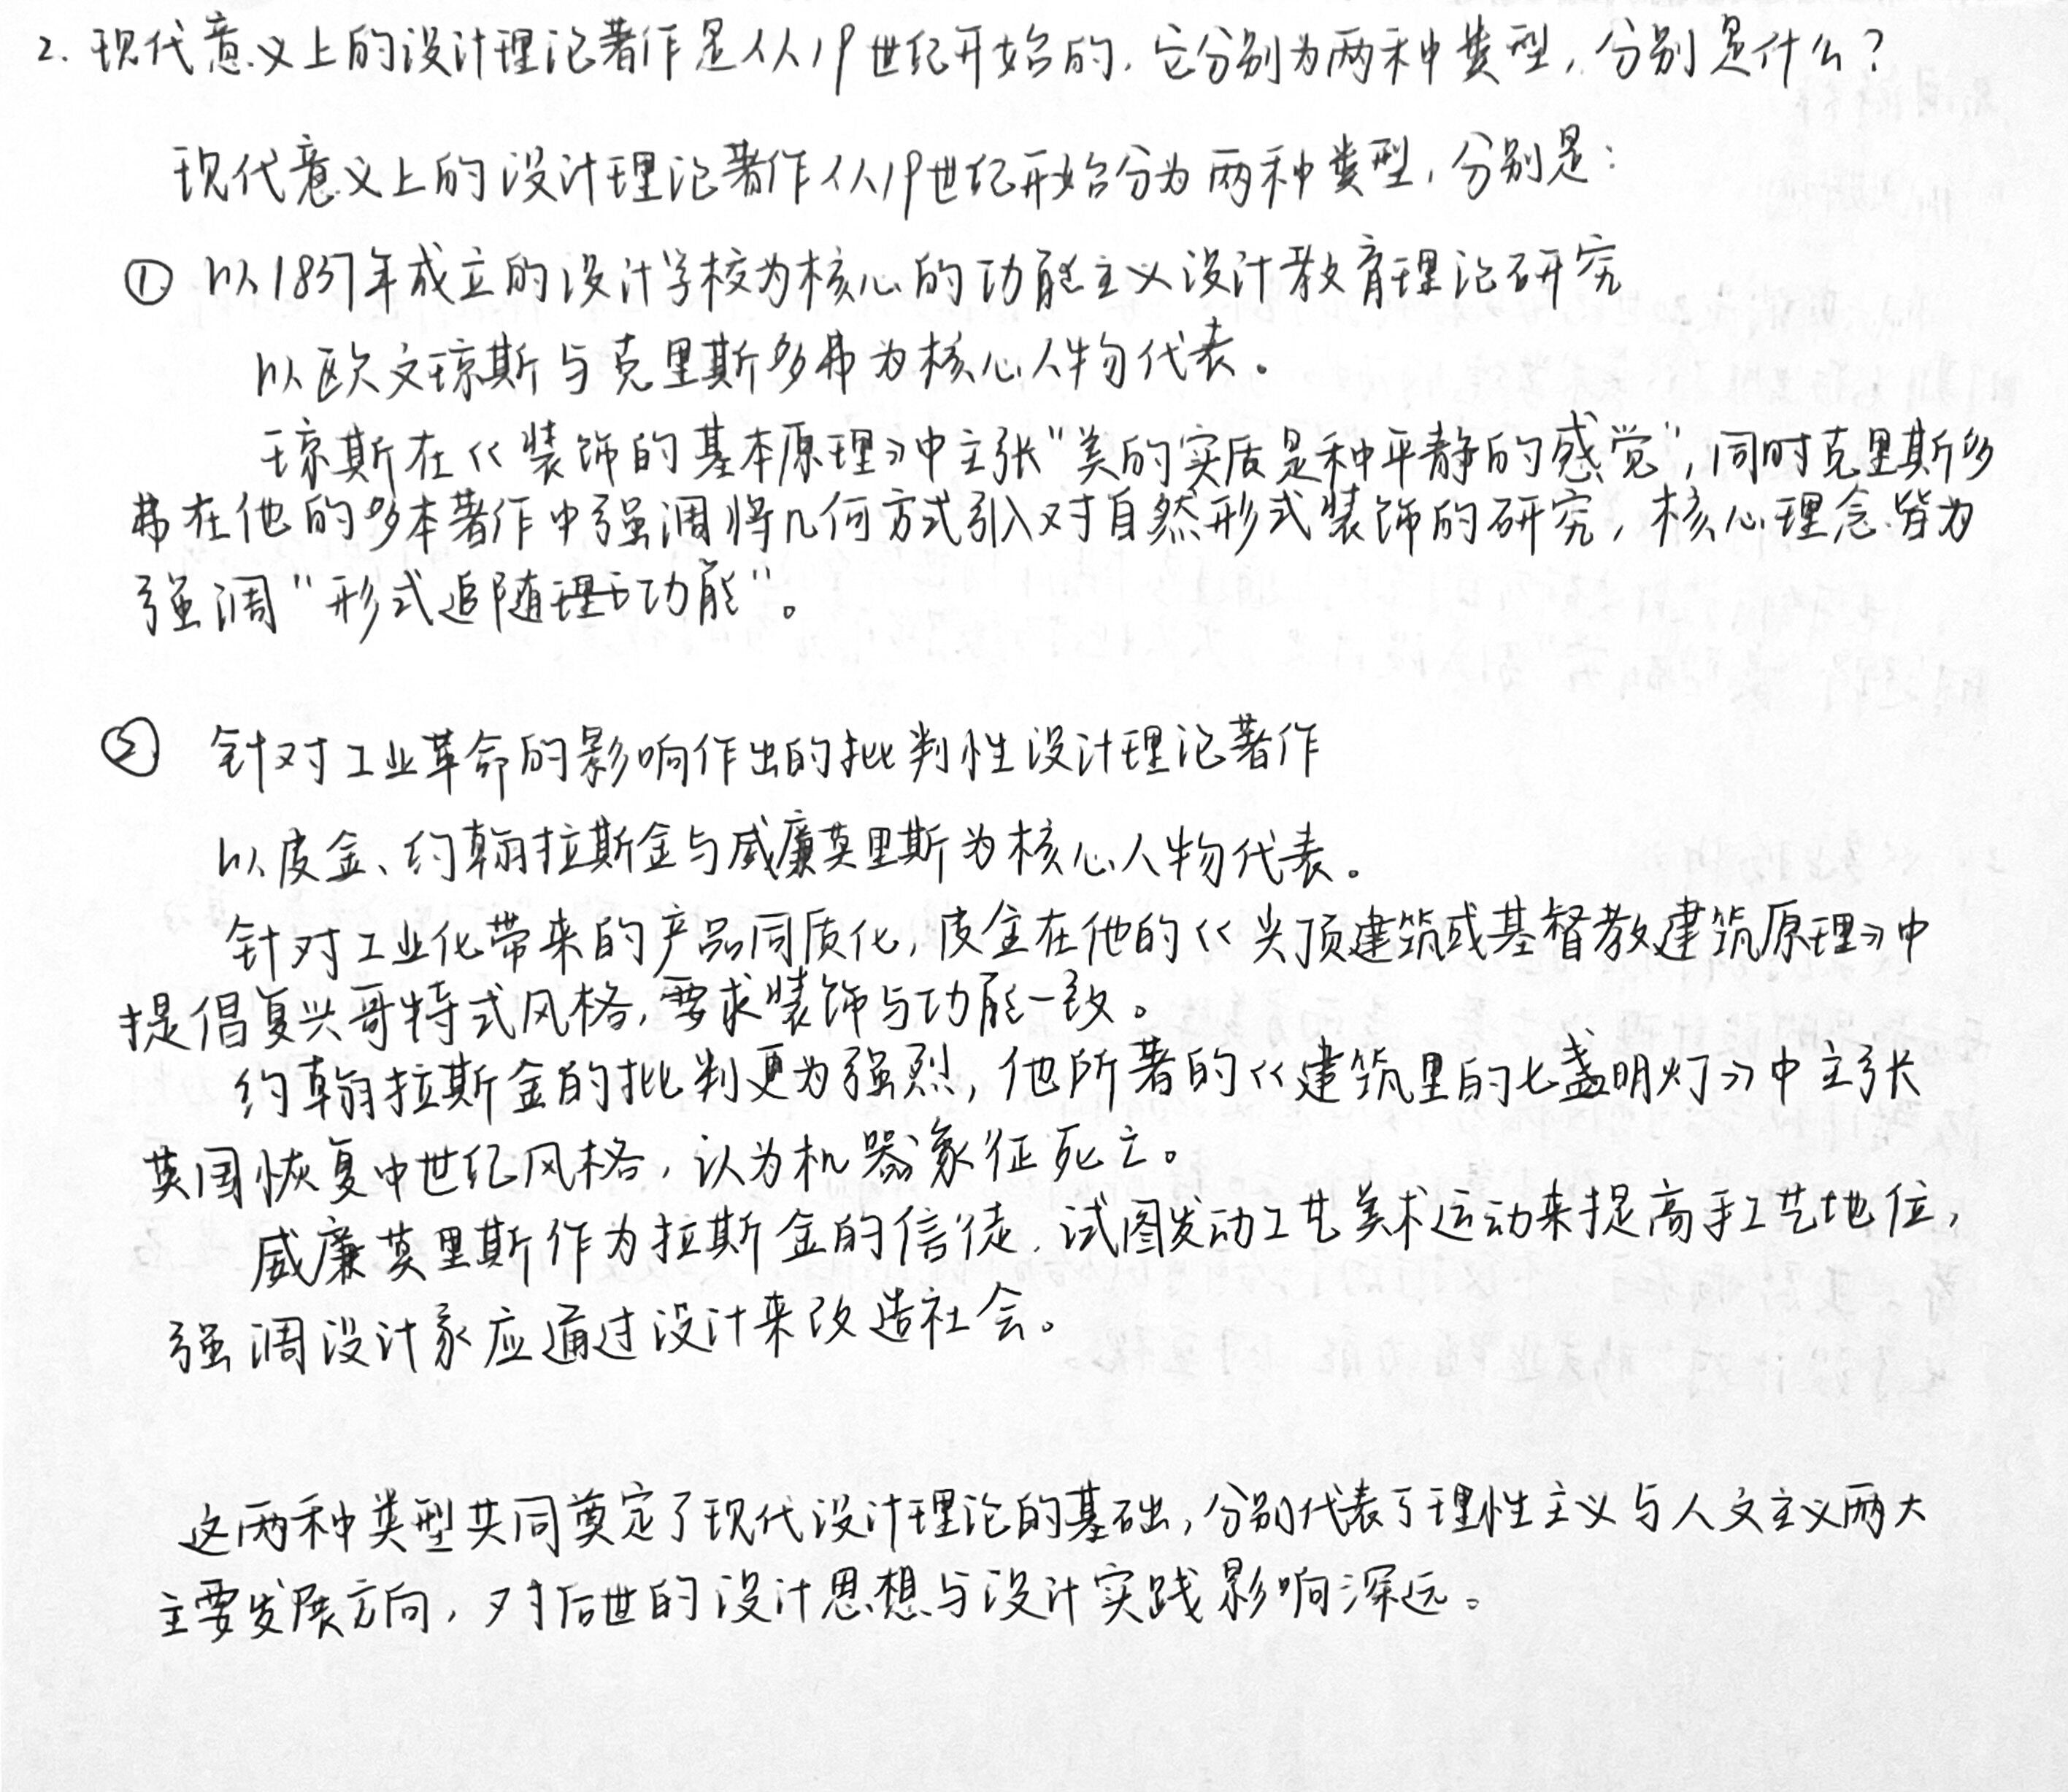 2. 现代意义上的设计理论著作是从19世纪开始的,它分别为两种类型,分别是什么?
现代意义上的设计理论著作从19世纪开始分为两种类型,分别是:
① 以1837年成立的设计学校为核心的功能主义设计教育理论研究
以欧文琼斯与克里斯多弗为核心人物代表。
琼斯在《装饰的基本原理》中主张"美的实质是种平静的感觉",同时克里斯多
弗在他的多本著作中强调将几何方式引入对自然形式装饰的研究,核心理念皆为
强调"形式追随功能"。
② 针对工业革命的影响作出的批判性设计理论著作
以皮金、约翰拉斯金与威廉莫里斯为核心人物代表。
针对工业化带来的产品同质化,皮金在他的《尖顶建筑或基督教建筑原理》中
提倡复兴哥特式风格,要求装饰与功能一致。
约翰拉斯金的批判更为强烈,他所著的《建筑里的七盏明灯》中主张
英国恢复中世纪风格,认为机器象征死亡。
威廉莫里斯作为拉斯金的信徒,试图发动工艺美术运动来提高手工艺地位,
强调设计家应通过设计来改造社会。
这两种类型共同奠定了现代设计理论的基础,分别代表了理性主义与人文主义两大
主要发展方向,对后世的设计思想与设计实践影响深远。